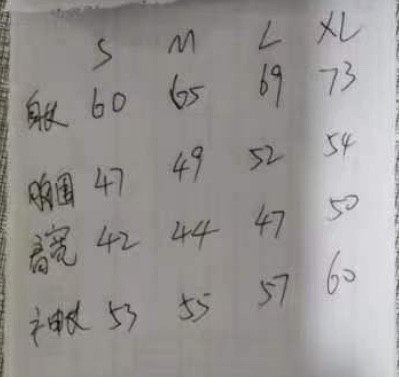 S M L XL
身长 60 65 69 73
胸围 47 49 52 54
肩宽 42 44 47 50
袖长 53 55 57 60